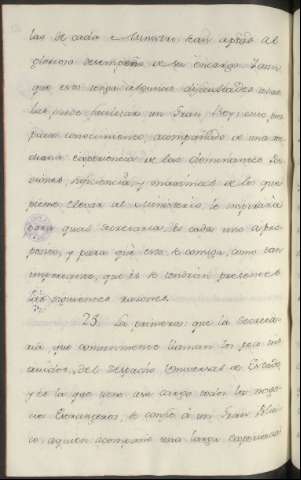 las de cada Ministro tan aptado al
glorioso desempeño de su encargo. Y aun
que esto tenga algunas dificultades cono
las puede facilitar un gran Rey, como, un
pleno conocimiento, acompañado de una me
diana experiencia de los dominantes ge
nios, suficiencia, y maximas de los que
piense elevar al Ministerio, le mostrará
para qual Secretaría es cada uno a pro
posito, y para que esto se consiga, como tan
importante, que se tendrán presentes
las siguientes razones.
23. La primera: que la Secreta
ría, que comunmente llaman los poco ins
truidos, del Despacho Universal de Estado,
y es la que tiene a su cargo todos los nego
cios Extrangeros, se confie à un gran Politi
co, a quien acompañe una larga experiencia